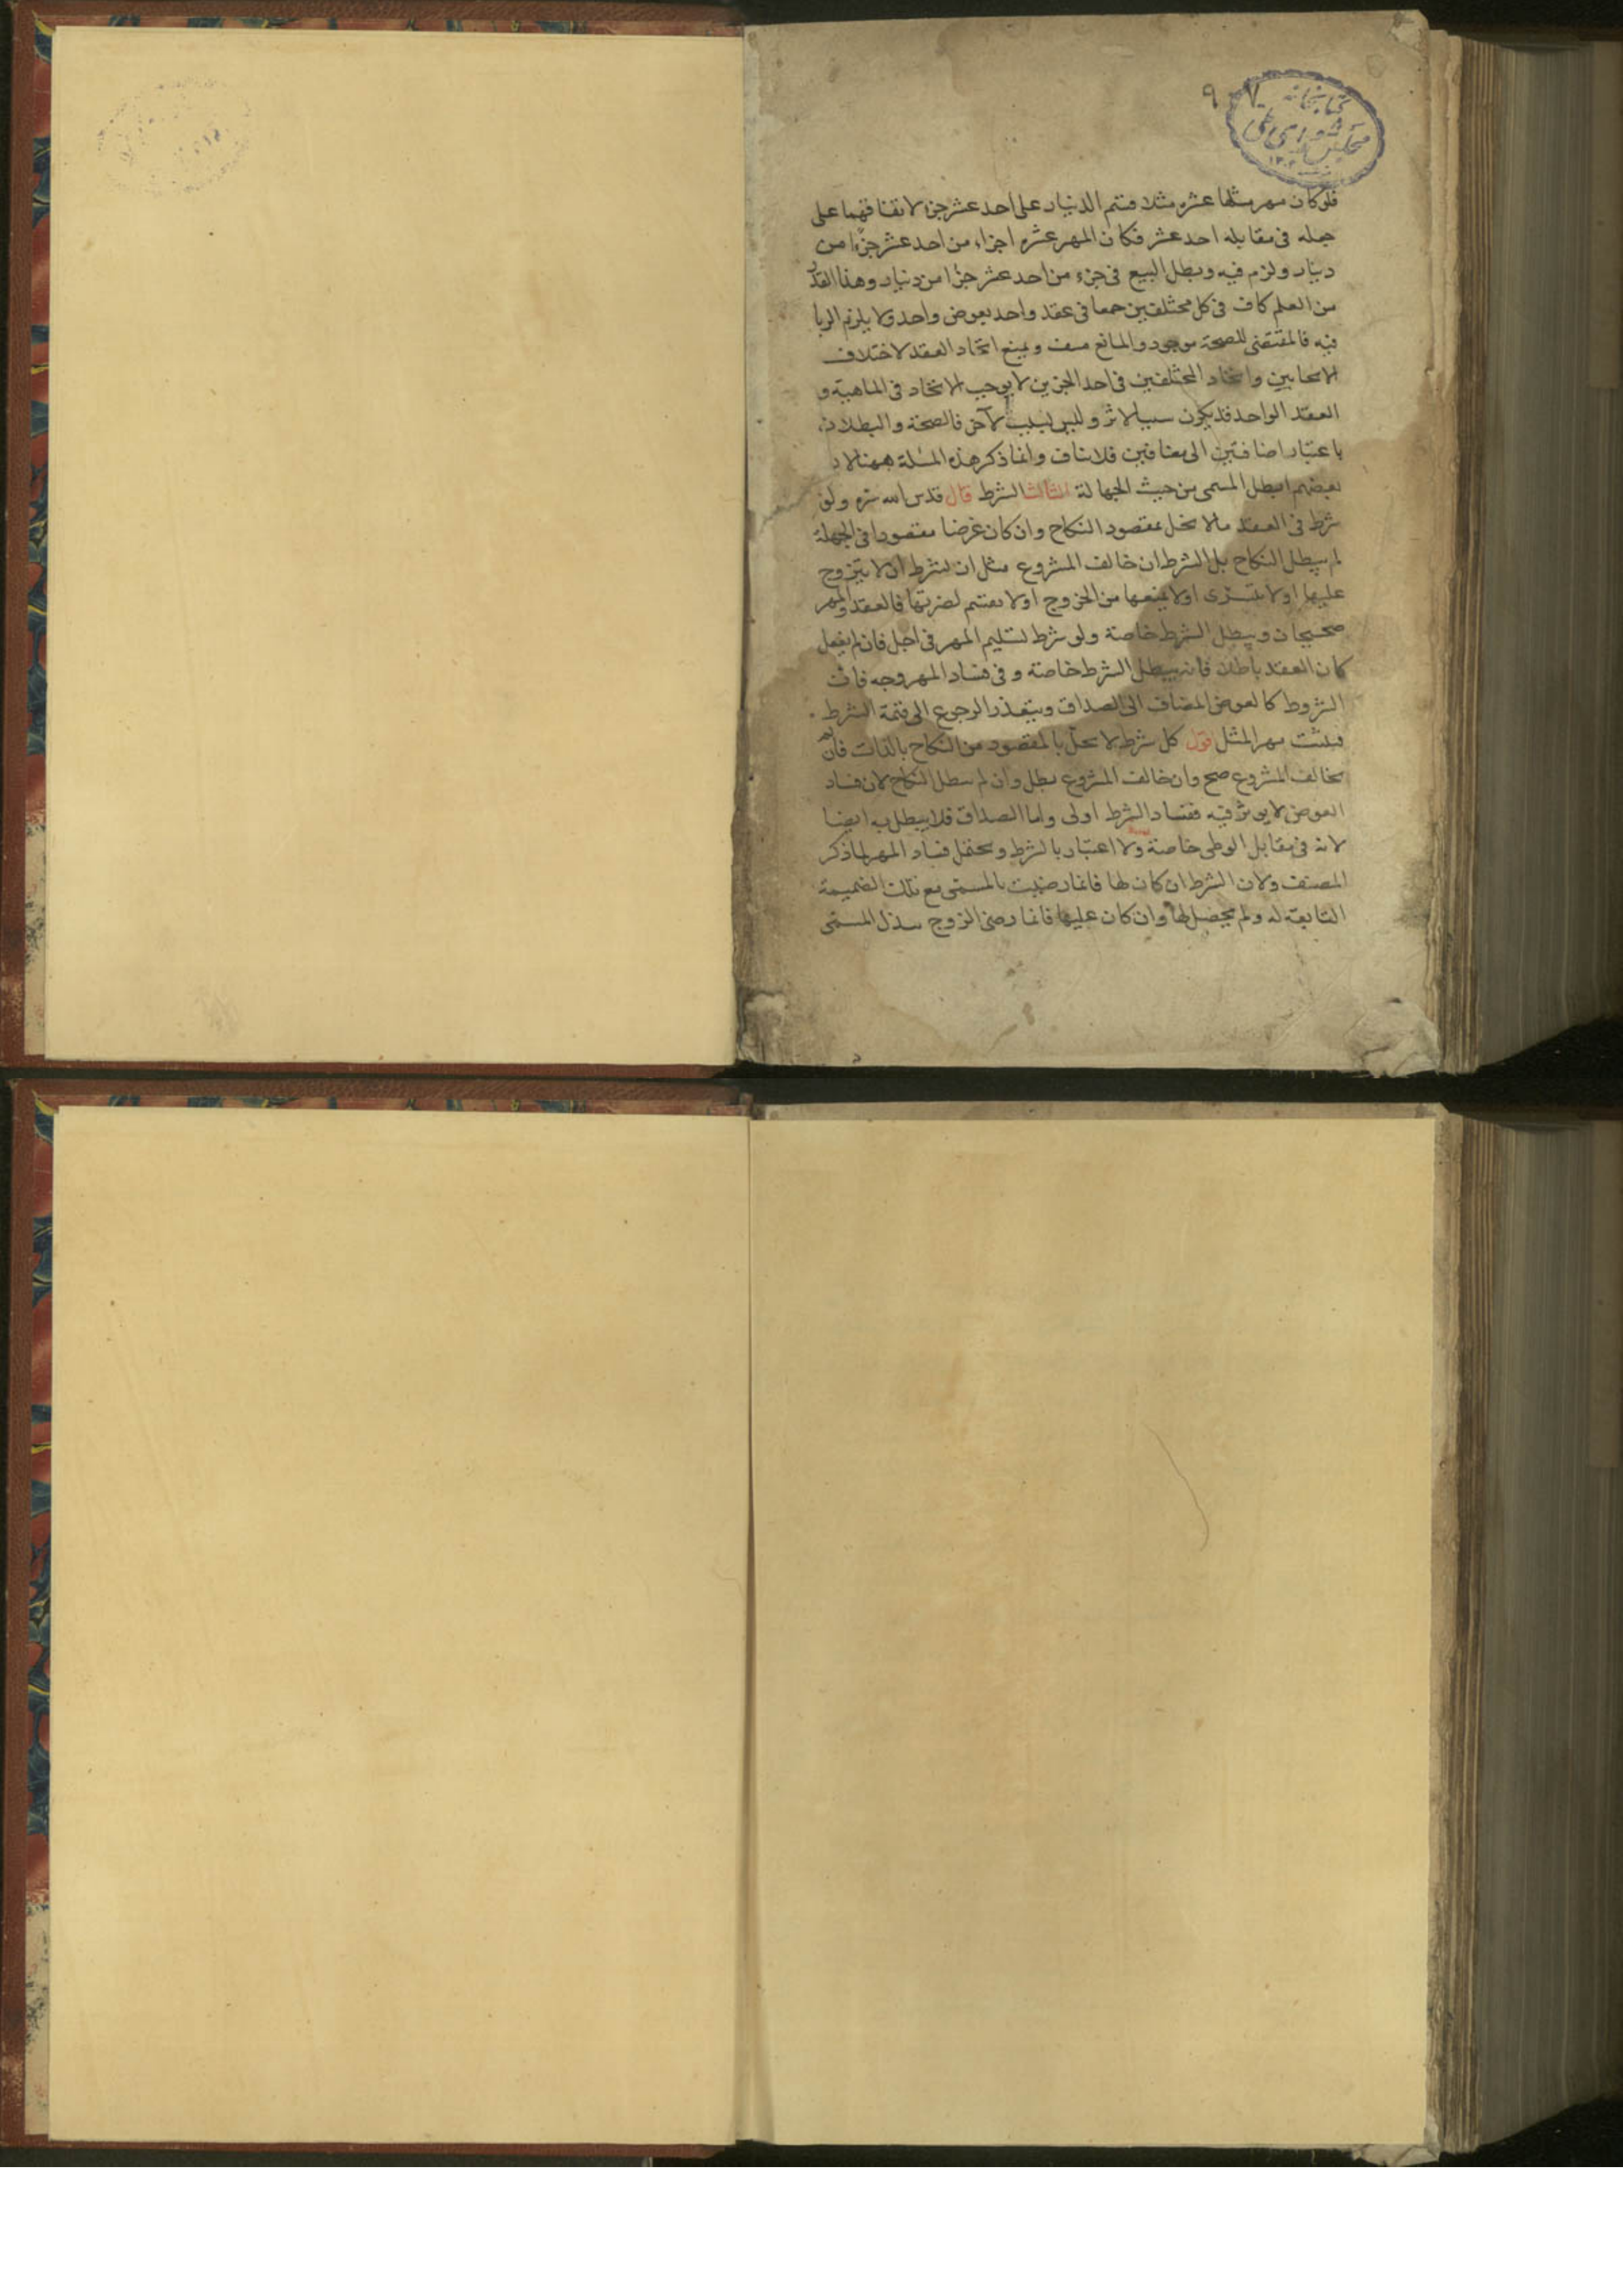 كتابخانه
مجلس شورای ملی
۹۰۷
فلو كان مهر مثلها عشره مثلا قسم الدينار على احد عشر جزء لاتفاقهما على
جمله فى مقابله احد عشر فكان المهر عشره اجزاء من احد عشر جزءًا من
دينار ولزم فيه وبطل البيع فى جزء من احد عشر جزًا من دينار وهذا القدر
من العلم كاف فى كل مختلفين جمعا فى عقد واحد بعوض واحد ولا يلزم الربا
فيه فالمقتضى للصحة موجود والمانع منتف ويمنع اتحاد العقد لاختلاف
الايجابين واتحاد المختلفين فى احد الجزين لا يوجب الاتحاد فى الماهية و
العقد الواحد قد يكون سببا لاثر وليس بسبب لآخر فالصحة والبطلان
باعتبار اضافتين الى مضافين فلا تناف وانما ذكر هذه المسئلة ههنا لان
بعضهم ابطل المسمى من حيث الجهالة الثالث الشرط قال قدس الله سره ولو
شرط فى العقد ما لا يخل بمقصود النكاح وان كان غرضا مقصودا فى الجملة
لم يبطل النكاح بل الشرط ان خالف المشروع مثل ان يشترط ان لا يتزوج
عليها او لا يتسرى او لا يمنعها من الخروج او لا يقسم لضرتها فالعقد والمهر
صحيحان ويبطل الشرط خاصة ولو شرط تسليم المهر فى اجل فان لم يفعل
كان العقد باطلا فانه يبطل الشرط خاصة و فى فساد المهر وجه فان
الشروط كالعوض المضاف الى الصداق ويتعذر الرجوع الى قيمة الشرط
فيثبت مهر المثل اقول كل شرط لا يخل بالمقصود من النكاح بالذات فان لم
يخالف المشروع صح وان خالف المشروع بطل وان لم يبطل النكاح لان فساد
العوض لا يوثر فيه ففساد الشرط اولى واما الصداق فلا يبطل به ايضا
لانه فى مقابل الوطى خاصة ولا اعتبار بالشرط ويحتمل فساد المهر لما ذكر
المصنف ولان الشرط ان كان لها فانما رضيت بالمسمى مع تلك الضميمة
التابعة له ولم يحصل لها وان كان عليها فانما رضى الزوج ببذل المسمى